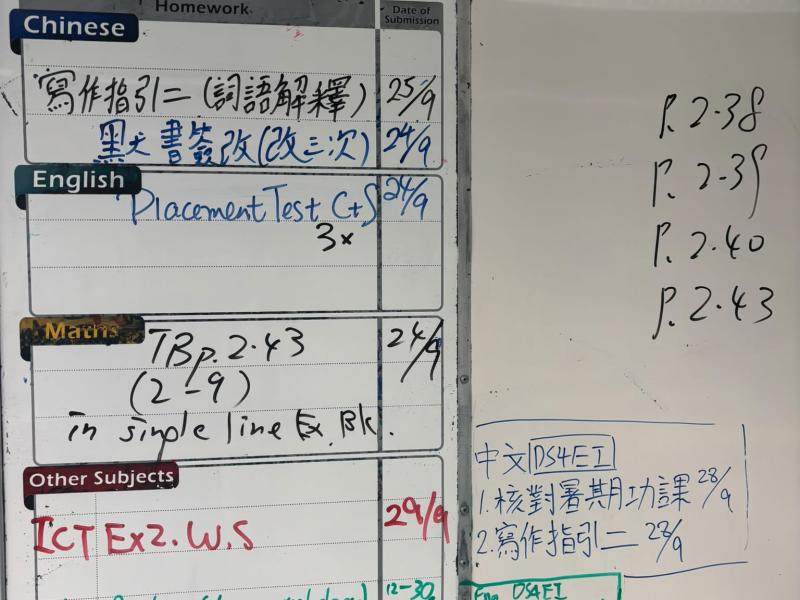 Homework
Date of
Submission
Chinese
寫作指引二(詞語解釋) 25/9
書簽改(改三次) 24/9
English
Placement Test C+S 24/9
3x
Maths
TB p.2.43 24/9
(2-9)
in single line Ex. Bk.
Other Subjects
ICT Ex2. W.S 29/9
12-30
P. 2.38
P. 2.39
P. 2.40
P. 2.43
中文 DS4EI
1.核對暑期功課 28/9
2.寫作指引二 28/9
Eng DS4EI